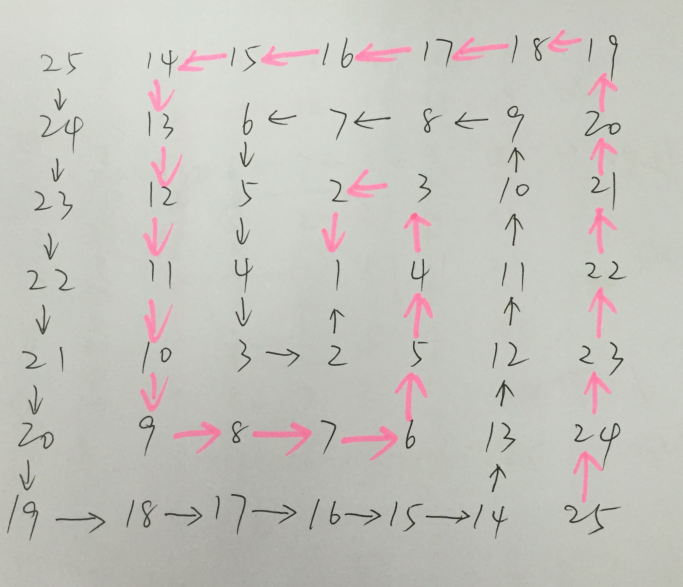 25 14 ← 15 ← 16 ← 17 ← 18 ← 19
↓ ↓ ↑
24 13 6 ← 7 ← 8 ← 9 20
↓ ↓ ↓ ↑ ↑
23 12 5 2 ← 3 10 21
↓ ↓ ↓ ↓ ↑ ↑ ↑
22 11 4 1 4 11 22
↓ ↓ ↓ ↑ ↑ ↑ ↑
21 10 3 → 2 5 12 23
↓ ↓ ↑ ↑ ↑
20 9 → 8 → 7 → 6 13 24
↓ ↑ ↑
19 → 18 → 17 → 16 → 15 → 14 25